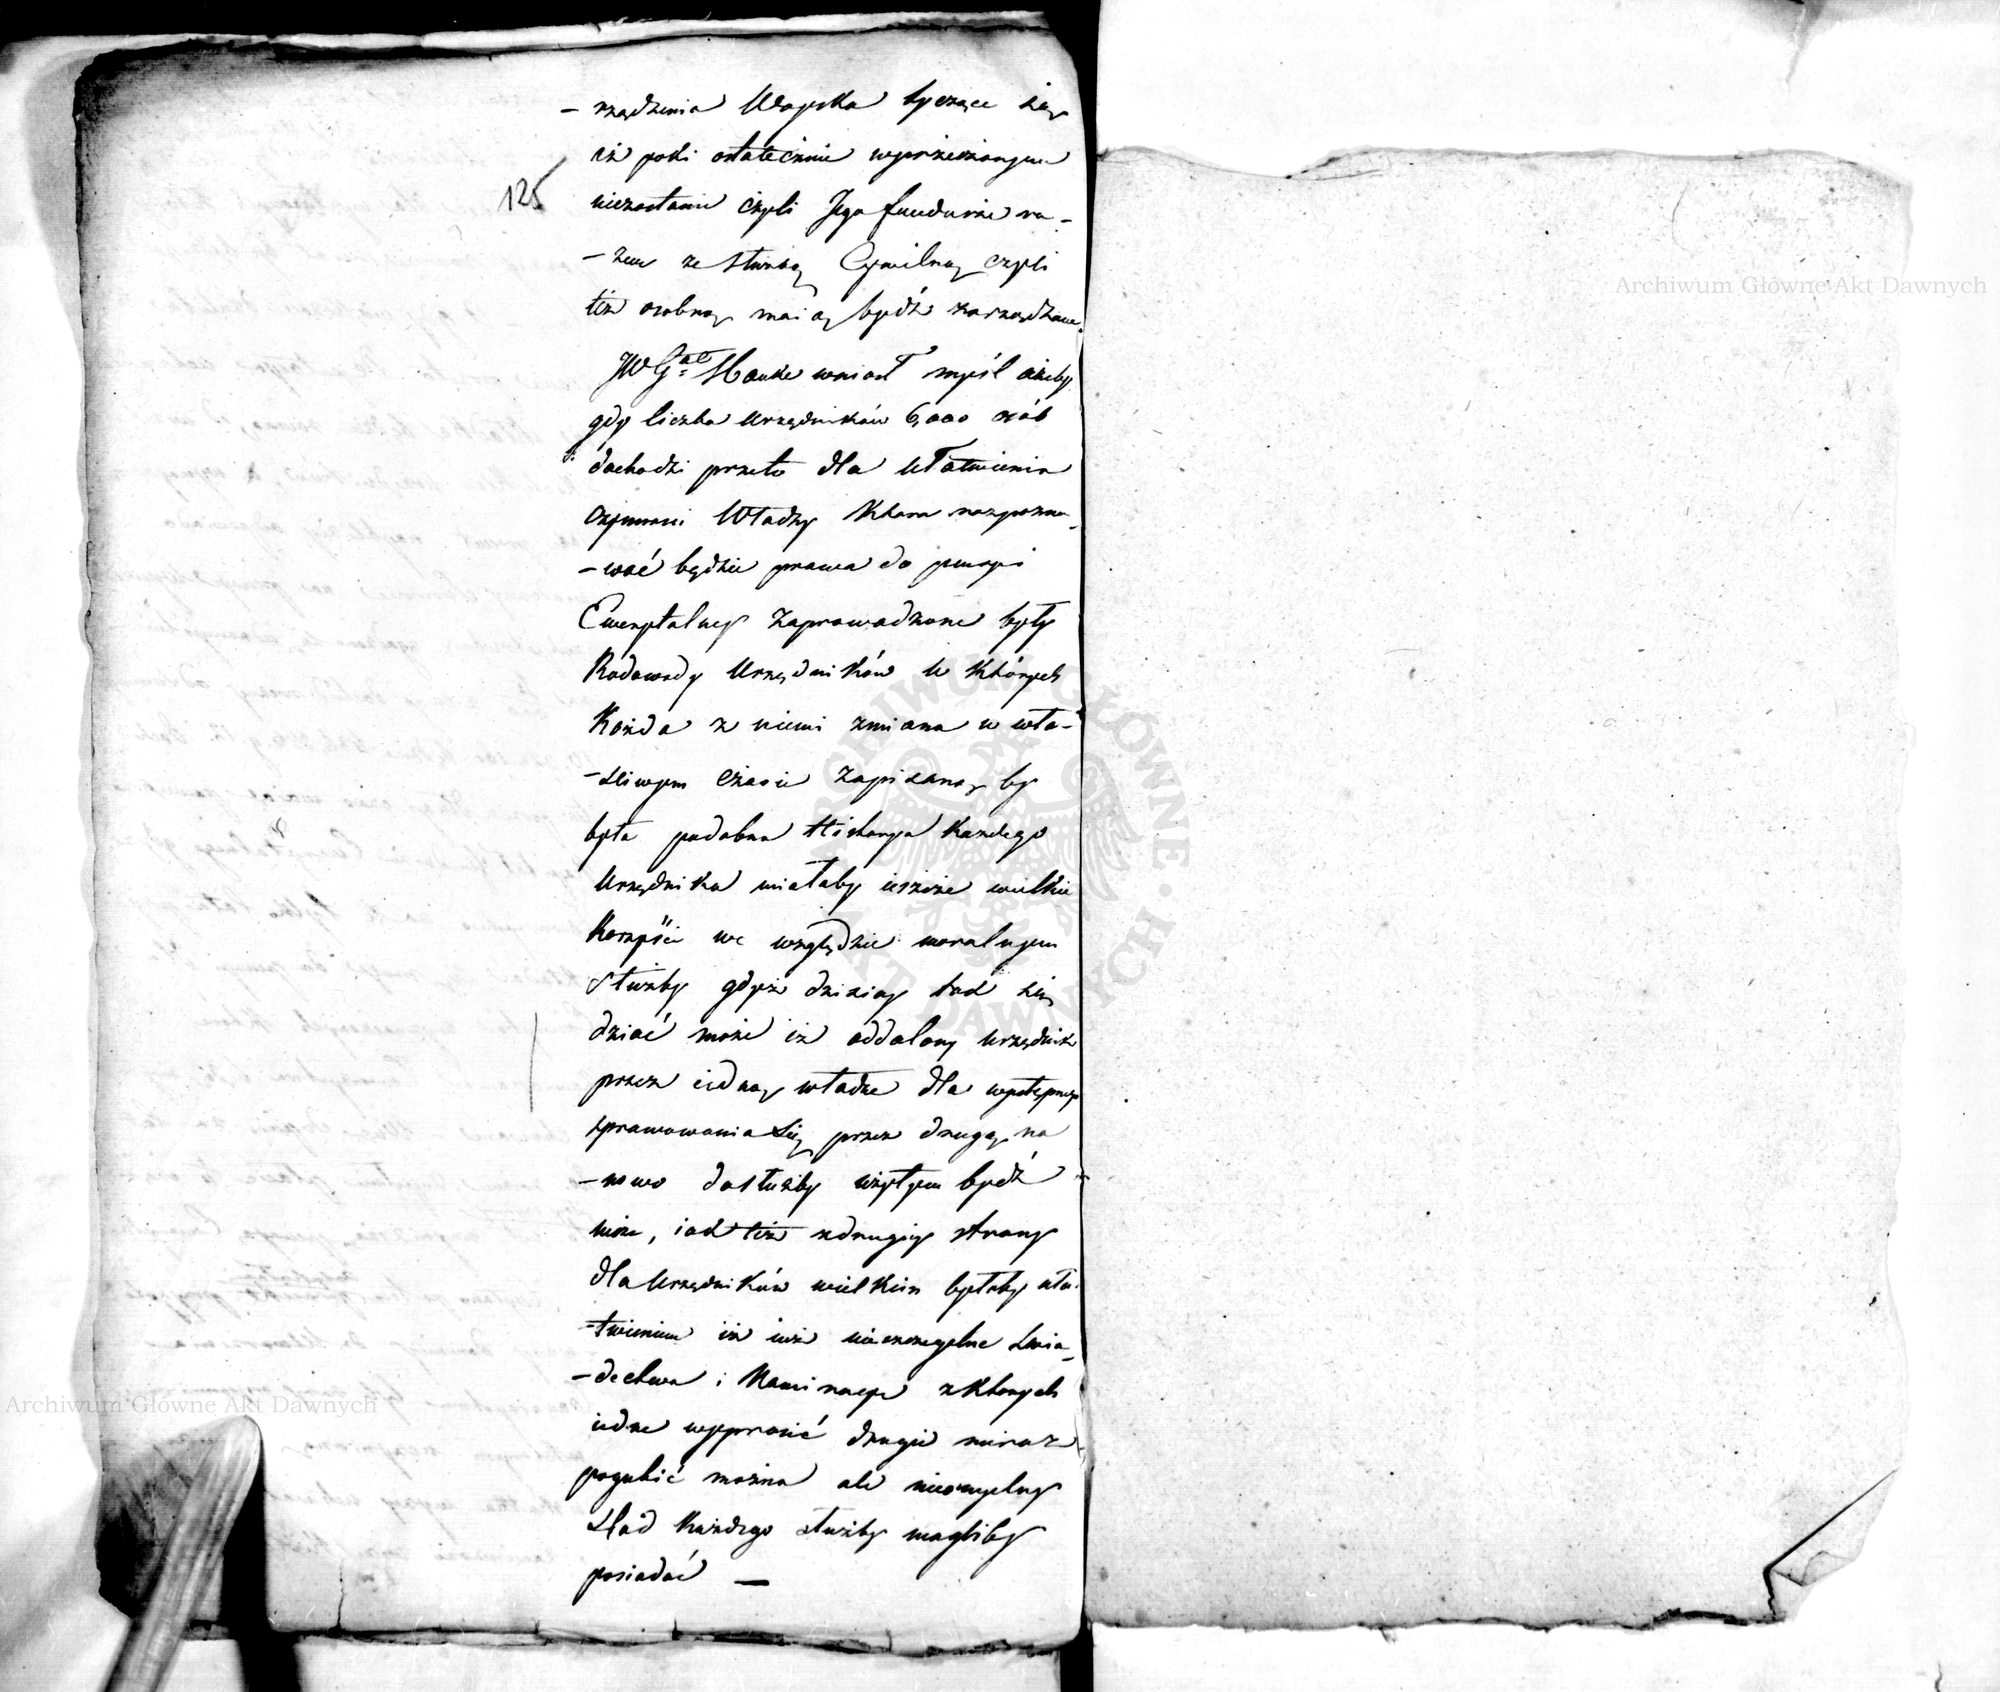 -rządzenia Woyska tyczące się
iż poki ostatecznie wyrzeczonym
125
niezostanie czyli Jego fundusze ra-
-zem ze służbą Cywilną czyli
też osobną maią bydź zarządzane.
JW Gał Hauke wniosł myśl ażeby
gdy liczba Urzędników 6,000 osób
dochodzi przeto dla Ułatwienia
czynności Władzy która rozpozna-
-wać będzie prawa do pensyi
Emerytalney zaprowadzone były
Rodowody Urzędników w których
Każda z niemi zmiana w wła-
-sciwym czasie zapisaną by
była podobna Historya każdego
Urzędnika miałaby ieszcze wielkie
Korzyści we względzie moralnym
służby gdyż dzisiay tak się
dziać może iż oddalony urzędnik
przez iedną władzę dla występnego
sprawowania się przez drugą na
-nowo do służby wziętym bydź
może, iak też z drugiey strony
dla Urzędników wielkim byłoby uła-
-twieniem iż iuż nieszczegulne swia-
-dectwa i Nominacye z których
iedne wyprosić drugie nieraz
pogubić można ale nieomylny
slad każdego służby mogliby
posiadać —
Archiwum Główne Akt Dawnych
Archiwum Główne Akt Dawnych
ARCHIWUM GŁÓWNE · AKT DAWNYCH ·